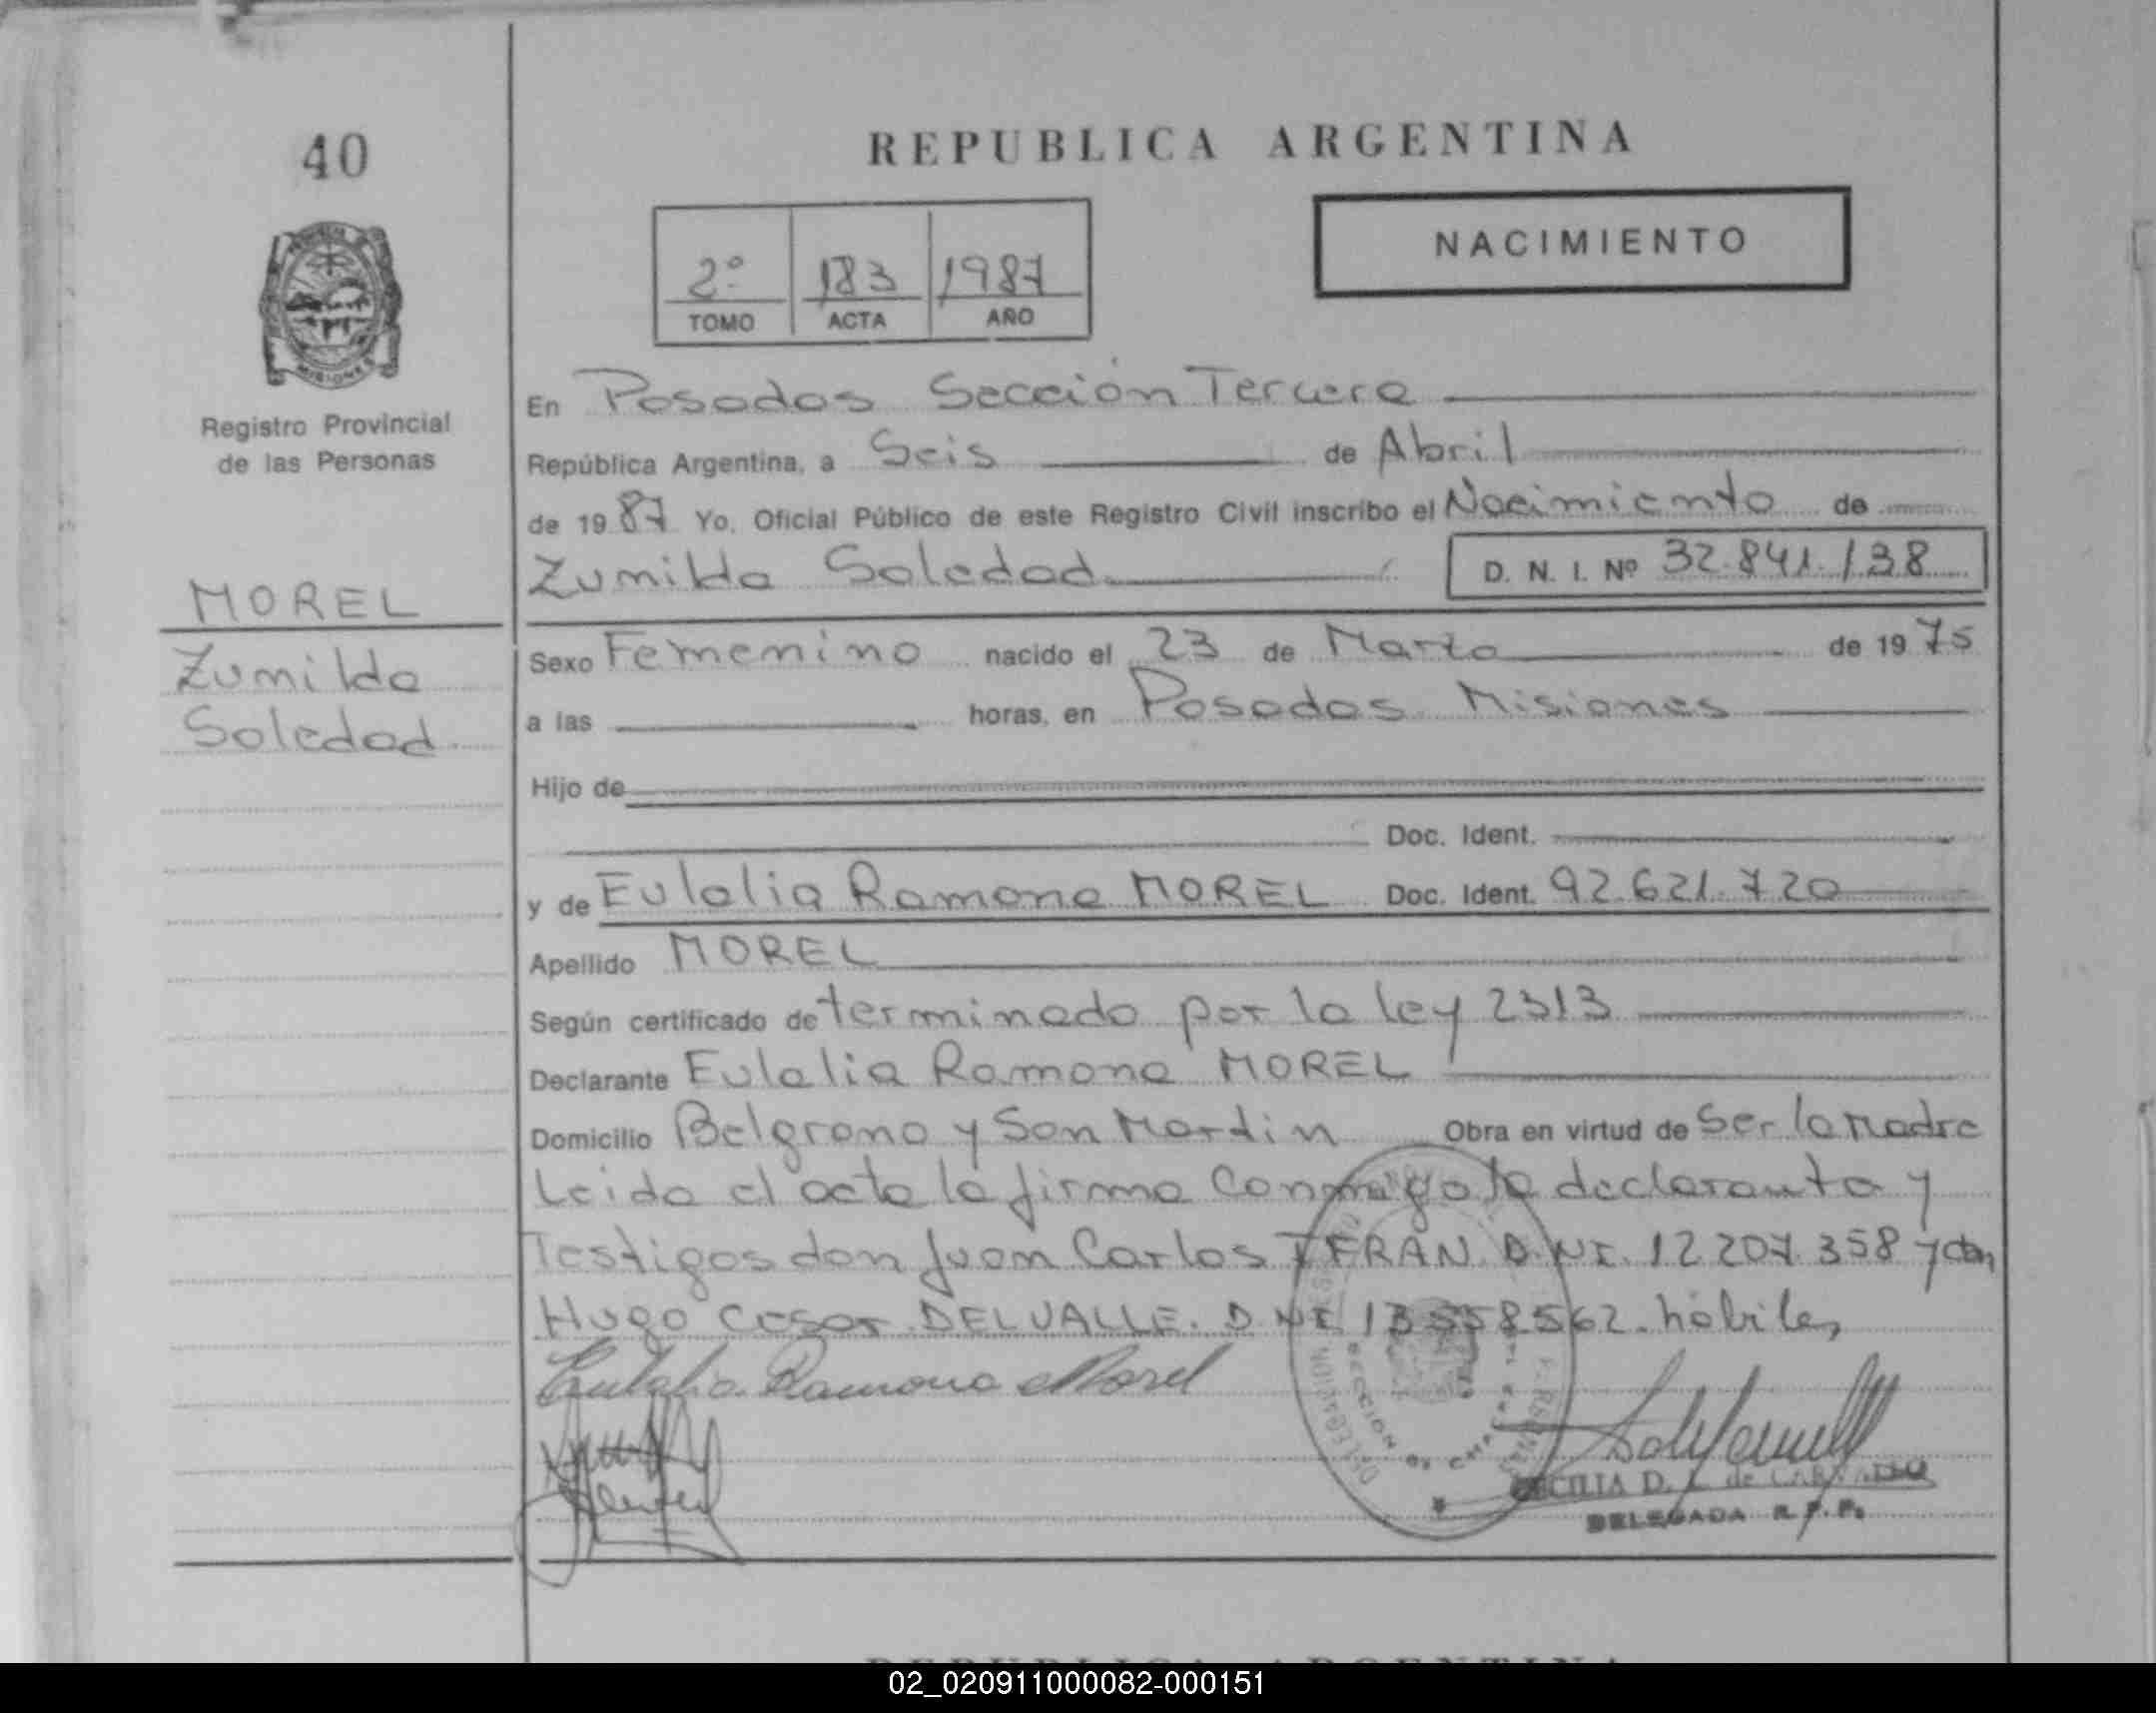 40
REPUBLICA ARGENTINA
NACIMIENTO
2º 183 1987
TOMO ACTA AÑO
MISIONES
Registro Provincial
de las Personas
MOREL
Zunilda
Soledad
En Posadas Sección Tercera
República Argentina, a Seis de Abril
de 1987 Yo, Oficial Público de este Registro Civil inscribo el Nacimiento de
Zunilda Soledad D. N. I. Nº 32.841.138
Sexo Femenino nacido el 23 de Marzo de 1975
a las horas, en Posadas Misiones
Hijo de
Doc. Ident.
y de Eulalia Ramona MOREL Doc. Ident. 92.621.720
Apellido MOREL
Según certificado determinado por la ley 2313
Declarante Eulalia Ramona MOREL
Domicilio Belgrano y San Martin Obra en virtud de Ser la Madre
Leida el acta la firma conmigo la declarante y
Testigos don Juan Carlos TERAN D.NI. 12.207.358 y don
Hugo Cesar DELVALLE. D NI 13558562. hábiles
Eulalia Ramona Morel
CECILIA D. L. de
DELEGADA R.P.P.
REPUBLICA ARGENTINA
02_020911000082-000151